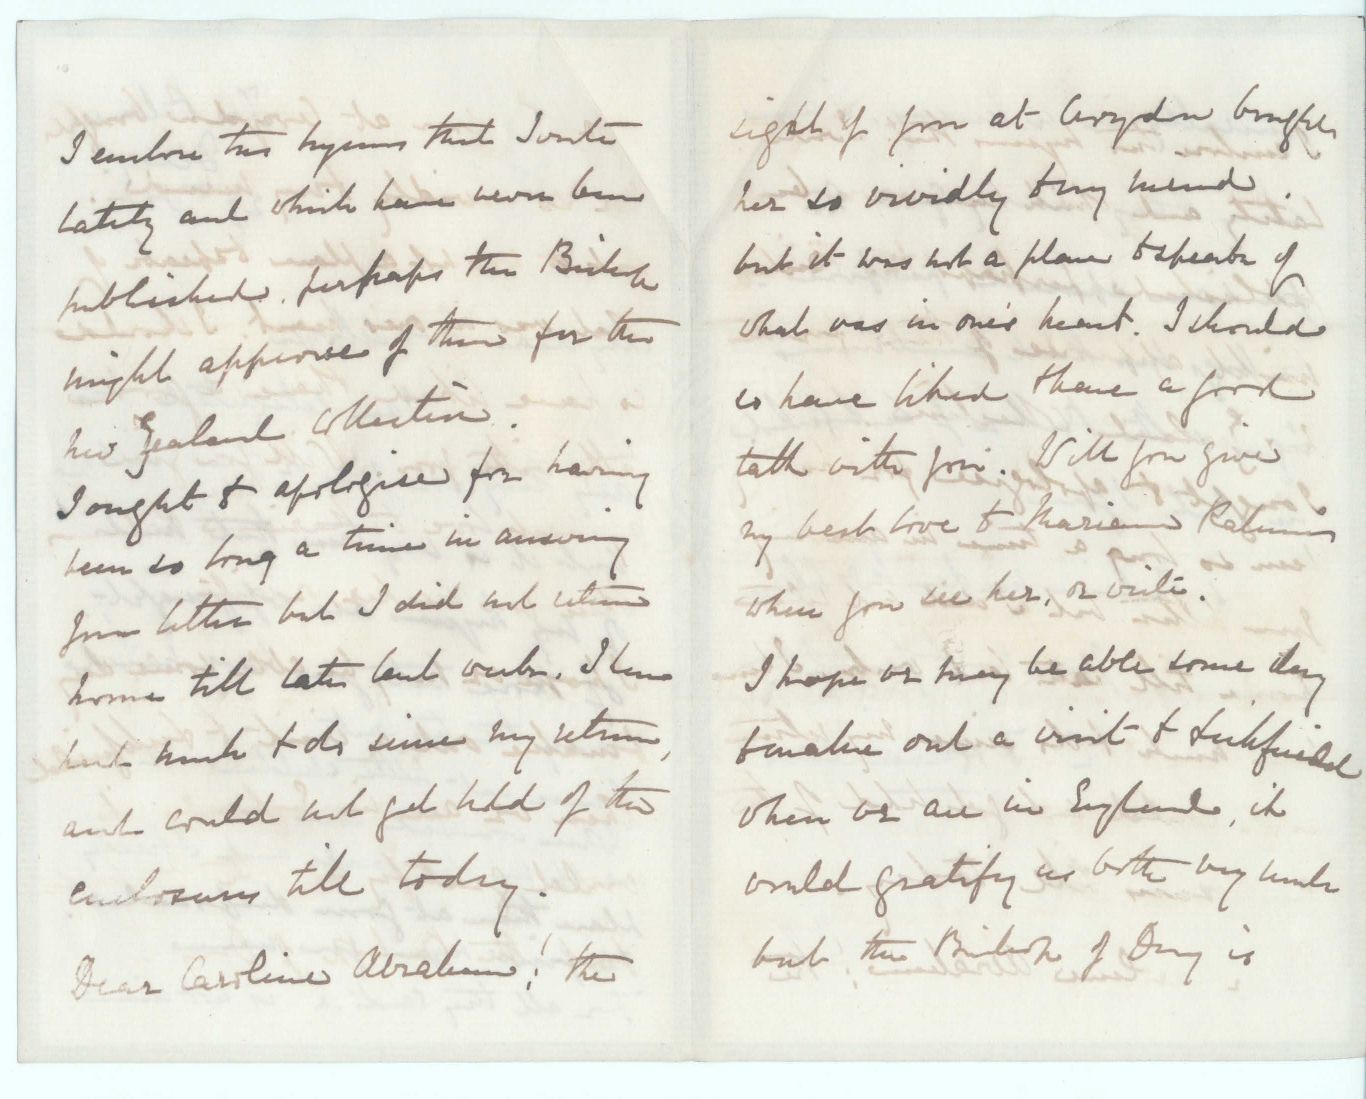 I enclose two hymns that I wrote
lately and which have never been
published. perhaps the Bishop
might approve of them for the
New Zealand Collection.
I ought to apologise for having
been so long a time in answering
your letter but I did not return
home till late last week. I have
had much to do since my return,
and could not get hold of the
enclosures till today.
Dear Caroline Abraham! the
sight of you at Croydon brought
her so vividly to my mind.
but it was not a place to speak of
what was in one's heart. I should
so have liked to have a good
talk with you. Will you give
my best love to
when you see her, or write.
I hope we may be able some day
to make out a visit to Lichfield
when we are in England, it
would gratify us both very much
but the Bishop of Derry is